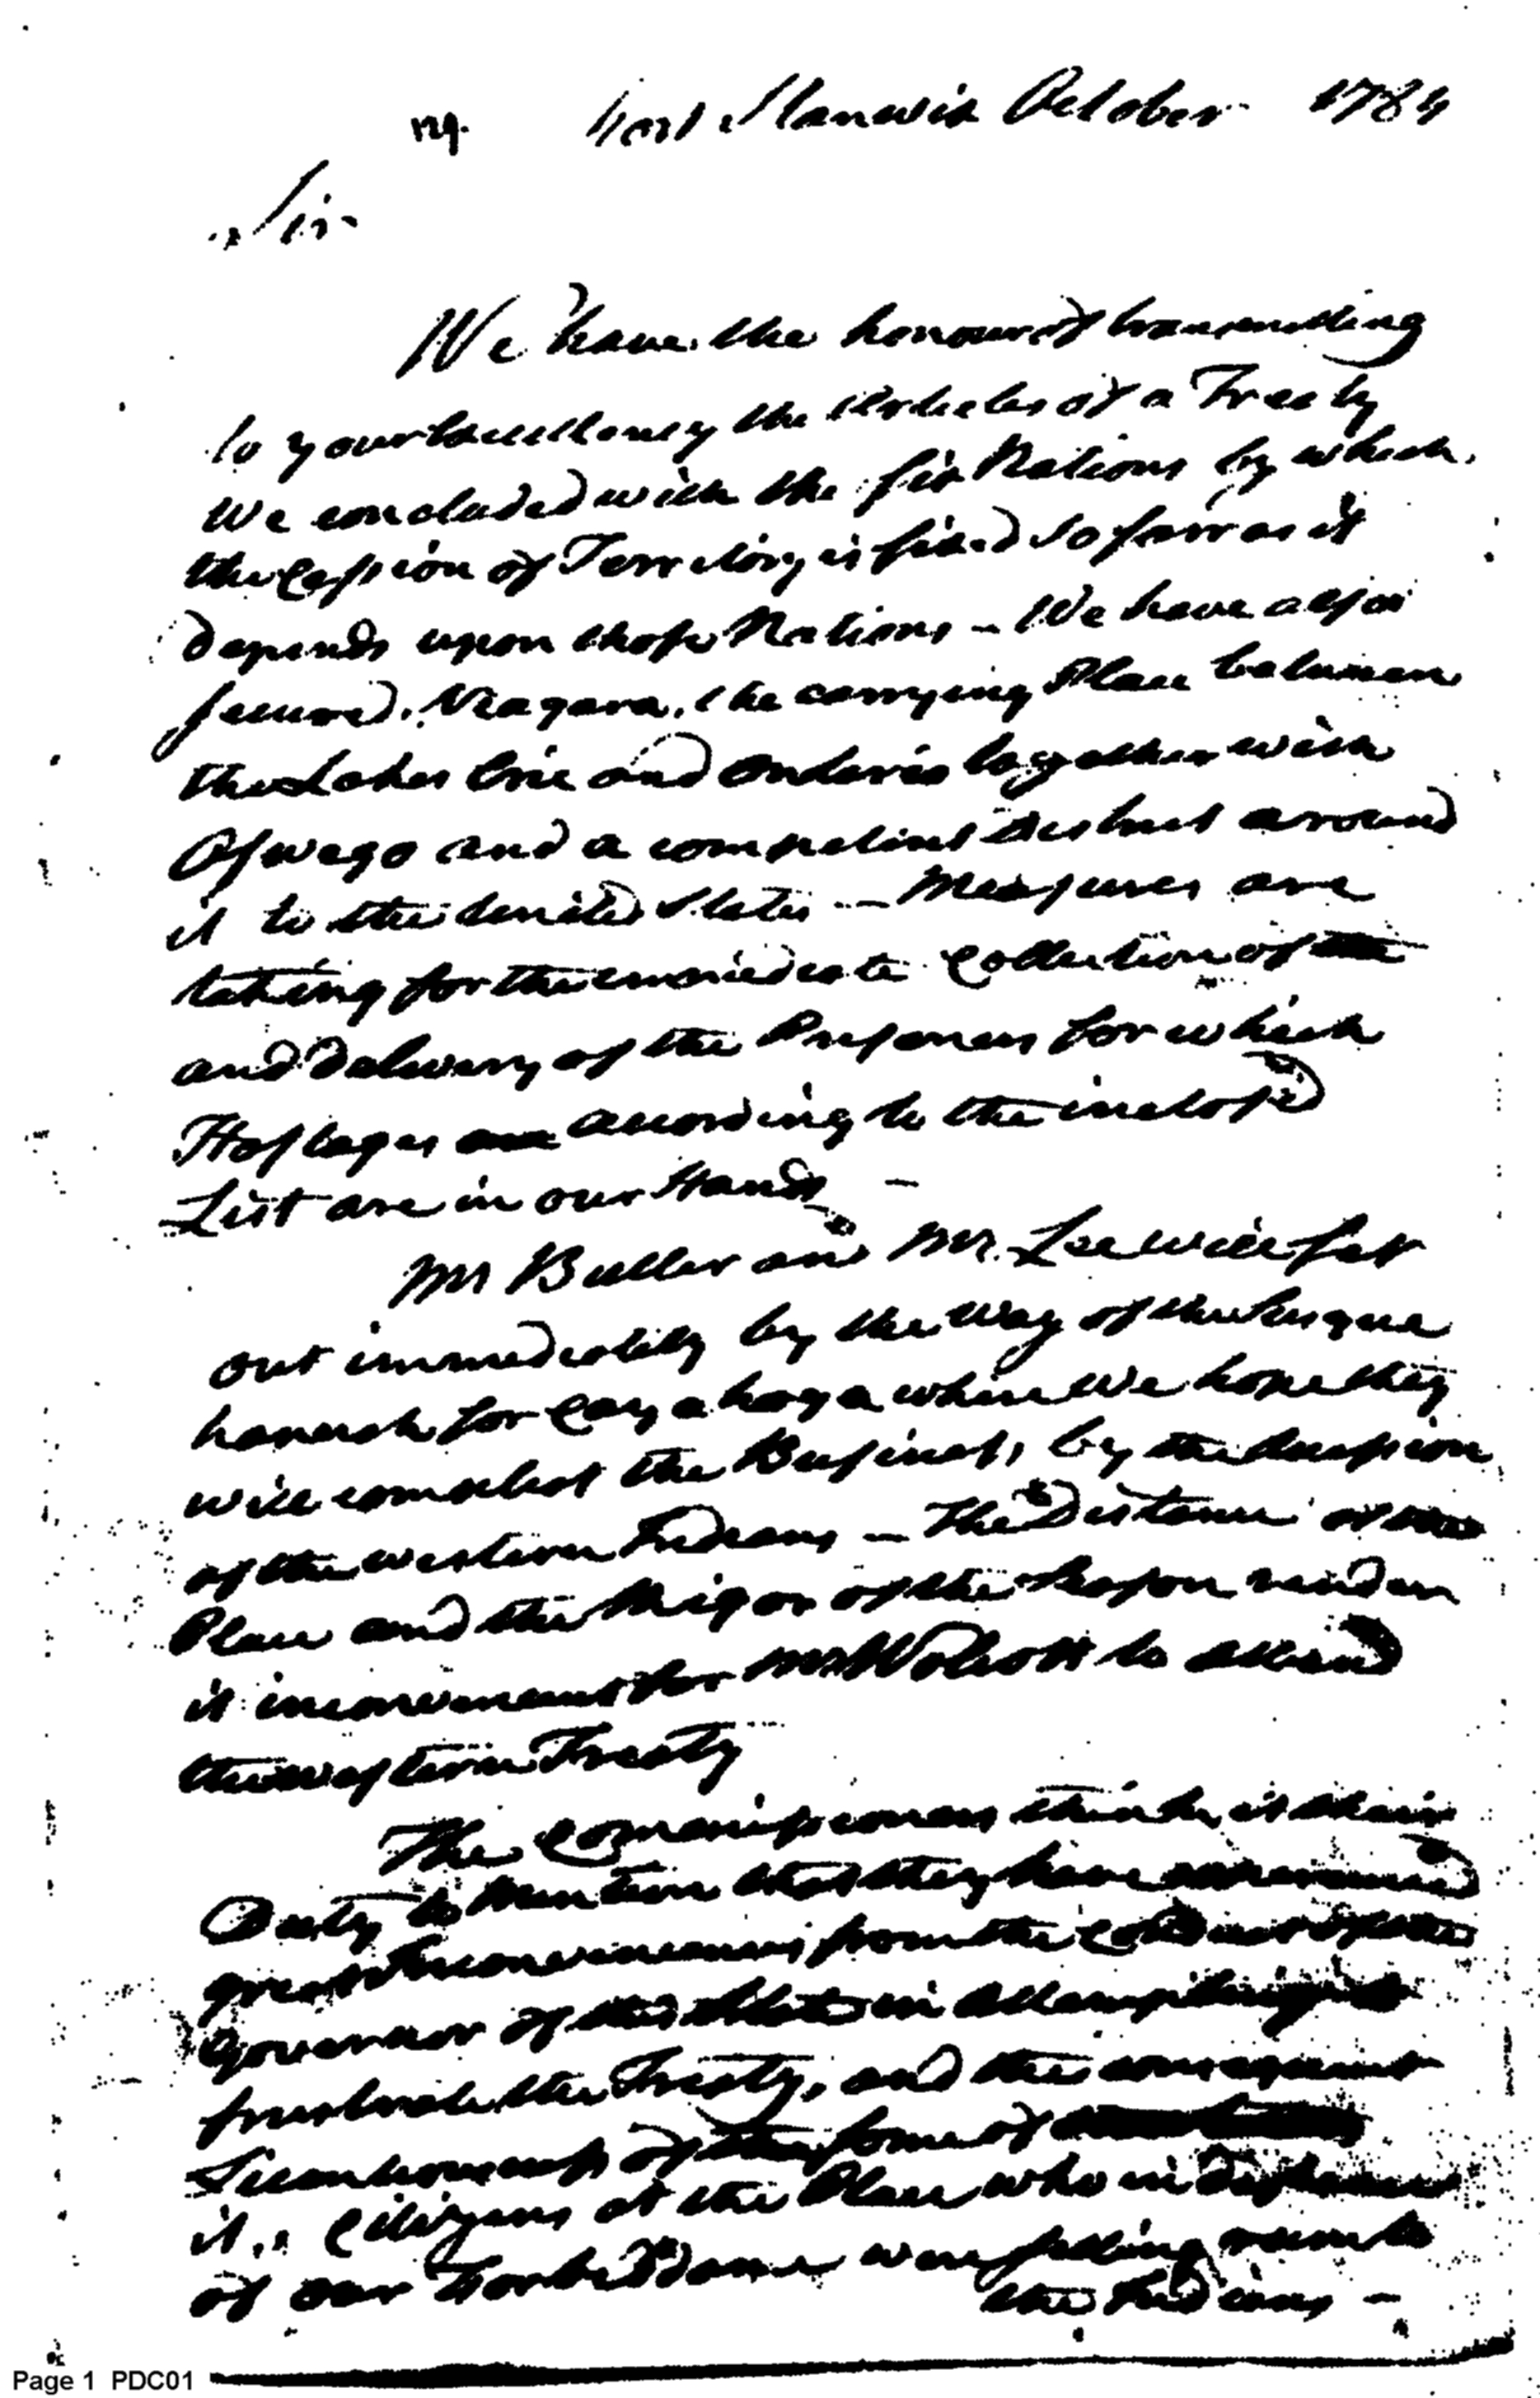 129. Fort Stanwix October 1784
Sir
We have the honour of transmitting
to your Excellency the Articles of a Treaty
We concluded with the six Nations by which
the Cession of Territory is fixed so farr as it
depends upon those Nations – We have also
secured Niagara, the carrying Place between
the Lakes Erie and Ontario together with
Oswego and a competent District around
it to the united States – Measures are
taking for the immediate Collection of the
and Delivery of the Prisoners for which
Hostages are according to the inclosed
List are in our Hands –
Mr Butler and Mr. Lee will set
out immediately by the Way of the Susque
hannah for Cayahoga where We hope they
will compleat the Business, by the
of the western Indians – The Distance of the
Place and the Rigor of the Season render
it inconvenient for Mr Wolcott to attend
the western Treaty
The Commissioners think it their
Duty to Mention that they have experienced
great Inconveniences from the Conduct of the
Governor of this State in attempting to
frustrate the Treaty, and the consequent
of some of
it,s Citizens at the Place who in Defiance
of our were selling rum to
the Indians –
Page 1 PDC01